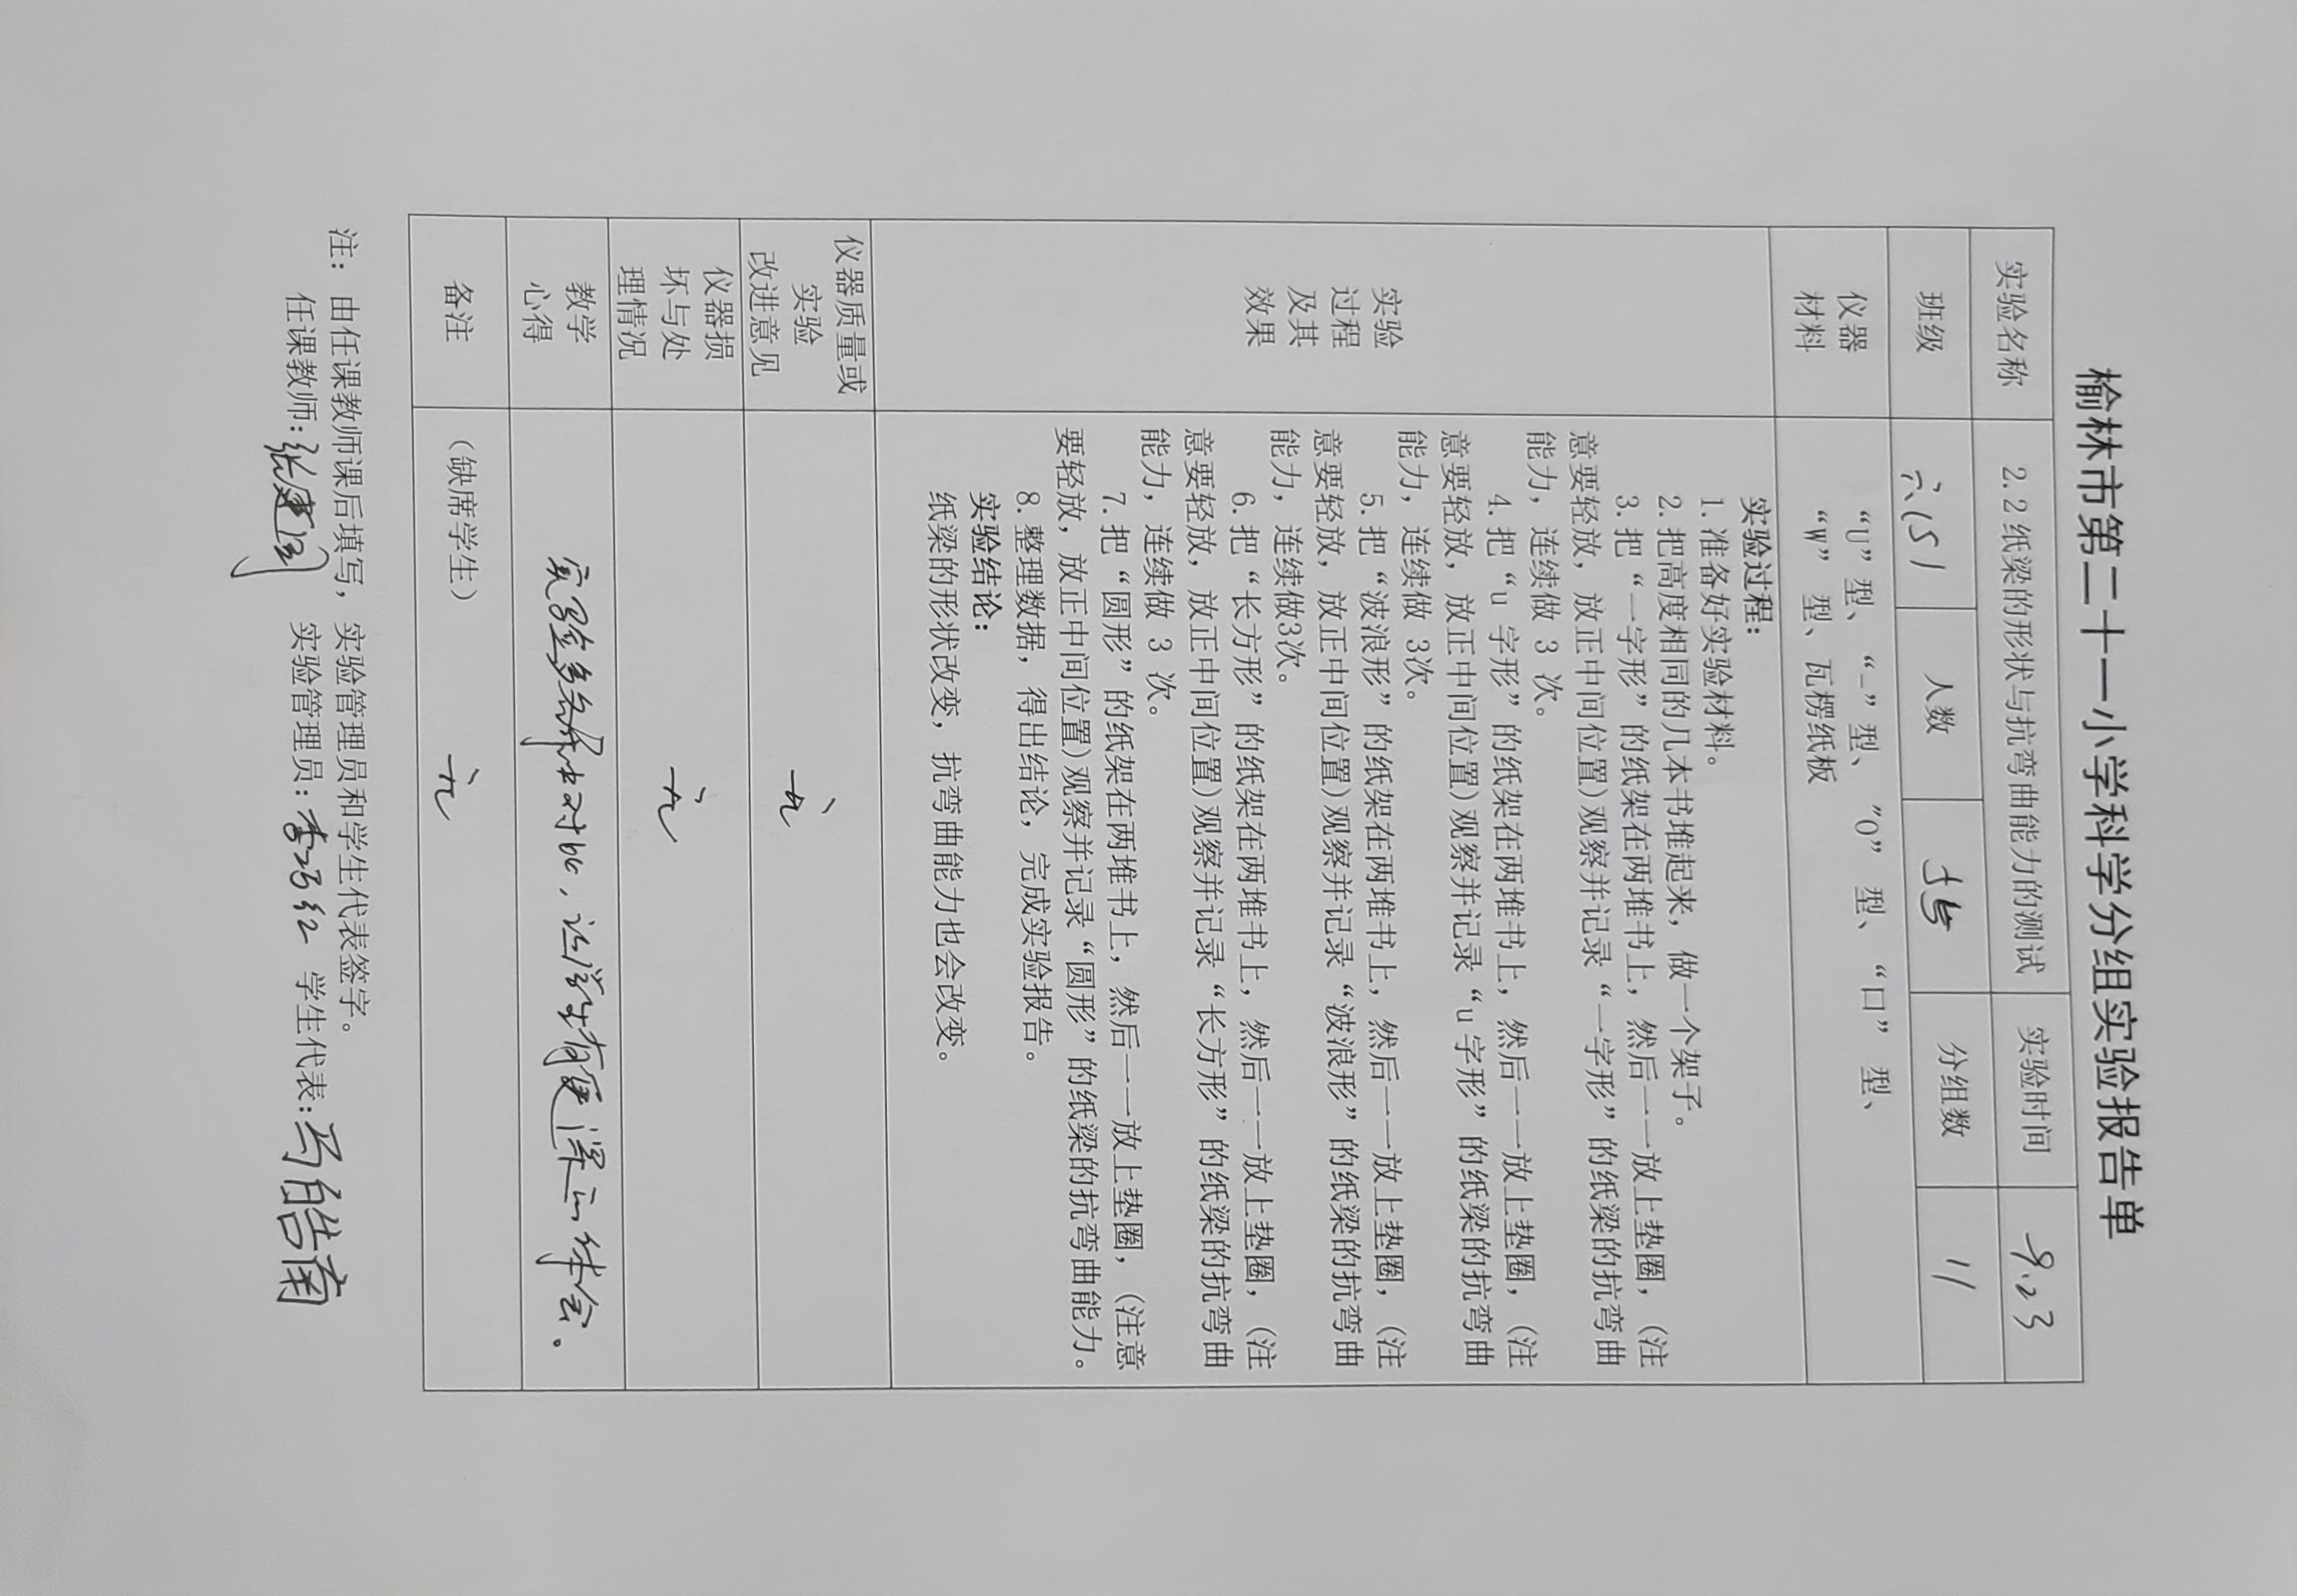 榆林市第二十一小学科学分组实验报告单
实验名称 2.2纸梁的形状与抗弯曲能力的测试 实验时间 9.23
班级 人数 分组数 11
仪器
材料
“U”型、“_”型、“O”型、“口”型、
“W”型、瓦楞纸板
实验
过程
及其
效果
实验过程：
1.准备好实验材料。
2.把高度相同的几本书堆起来，做一个架子。
3.把“一字形”的纸架在两堆书上，然后一一放上垫圈，（注
意要轻放，放正中间位置）观察并记录“一字形”的纸梁的抗弯曲
能力，连续做 3 次。
4.把“u 字形”的纸架在两堆书上，然后一一放上垫圈，（注
意要轻放，放正中间位置）观察并记录“u 字形”的纸梁的抗弯曲
能力，连续做 3次。
5.把“波浪形”的纸架在两堆书上，然后一一放上垫圈，（注
意要轻放，放正中间位置）观察并记录“波浪形”的纸梁的抗弯曲
能力，连续做3次。
6.把“长方形”的纸架在两堆书上，然后一一放上垫圈，（注
意要轻放，放正中间位置）观察并记录“长方形”的纸梁的抗弯曲
能力，连续做 3 次。
7.把“圆形”的纸架在两堆书上，然后一一放上垫圈，（注意
要轻放，放正中间位置）观察并记录“圆形”的纸梁的抗弯曲能力。
8.整理数据，得出结论，完成实验报告。
实验结论：
纸梁的形状改变，抗弯曲能力也会改变。
仪器质量或
实验
改进意见
无
仪器损
坏与处
理情况
无
教学
心得
实验多条件对比，让学生有更深的体会、
备注
（缺席学生） 无
注：由任课教师课后填写，实验管理员和学生代表签字。
任课教师： 实验管理员： 学生代表：马皓南